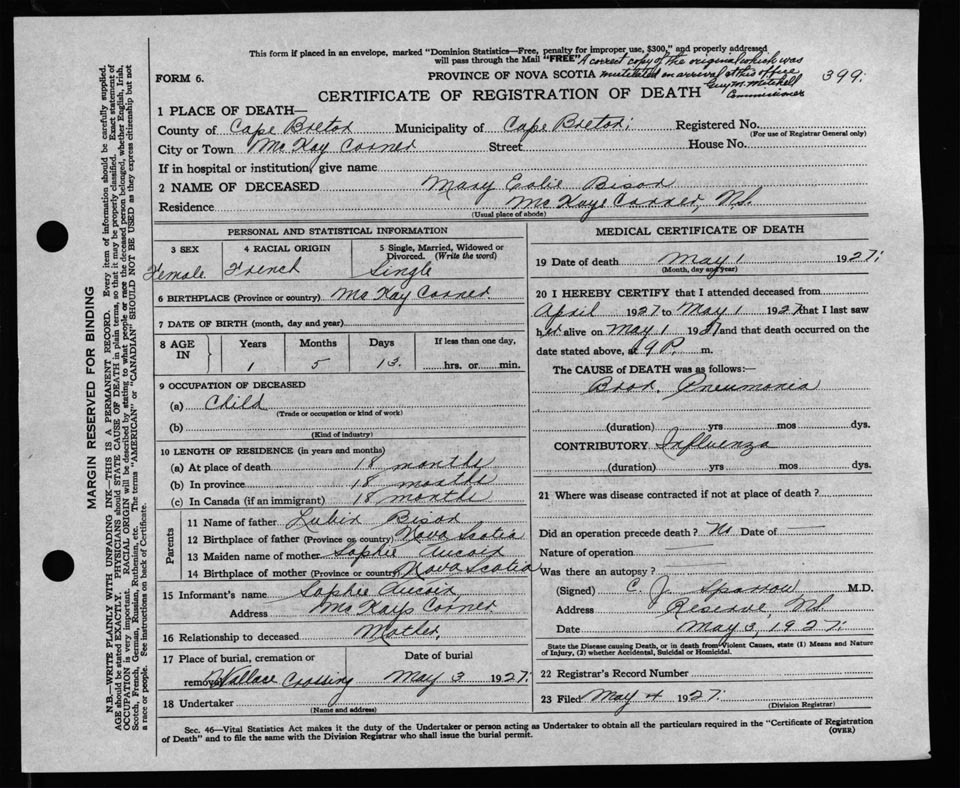 This form if placed in an envelope, marked "Dominion Statistics—Free, penalty for improper use, $300," and properly addressed
will pass through the Mail "FREE" A correct copy of the original which was
FORM 6. PROVINCE OF NOVA SCOTIA mutilated on arrival at this office 399.
CERTIFICATE OF REGISTRATION OF DEATH Guy M. Mitchell
Commissioner
1 PLACE OF DEATH—
County of Cape Breton Municipality of Cape Breton; Registered No.
(For use of Registrar General only)
City or Town McKay Corner Street House No.
If in hospital or institution, give name
2 NAME OF DECEASED Mary Eolie Bison
Residence McKays Corner, N.S.
(Usual place of abode)
PERSONAL AND STATISTICAL INFORMATION
3 SEX 4 RACIAL ORIGIN 5 Single, Married, Widowed or
Divorced. (Write the word)
Female French Single
6 BIRTHPLACE (Province or country) McKay Corner
7 DATE OF BIRTH (month, day and year)
8 AGE IN Years Months Days If less than one day,
1 5 13. hrs. or min.
9 OCCUPATION OF DECEASED
(a) Child
(Trade or occupation or kind of work)
(b)
(Kind of industry)
10 LENGTH OF RESIDENCE (in years and months)
(a) At place of death 18 months
(b) In province 18 months
(c) In Canada (if an immigrant) 18 months
Parents
11 Name of father Lubin Bison
12 Birthplace of father (Province or country) Nova Scotia
13 Maiden name of mother Sophie Aucoin
14 Birthplace of mother (Province or country) Nova Scotia
15 Informant's name Sophie Aucoin
Address McKays Corner
16 Relationship to deceased Mother
17 Place of burial, cremation or Date of burial
removal Wallace Crossing May 3 1927;
18 Undertaker
(Name and address)
MEDICAL CERTIFICATE OF DEATH
19 Date of death May 1 1927;
(Month, day and year)
20 I HEREBY CERTIFY that I attended deceased from
April 1927 to May 1 1927 that I last saw
her alive on May 1 1927 and that death occurred on the
date stated above, at 9 P. m.
The CAUSE of DEATH was as follows:—
Bron. Pneumonia
(duration) yrs mos dys.
CONTRIBUTORY Influenza
(duration) yrs mos dys.
21 Where was disease contracted if not at place of death?
Did an operation precede death? No Date of
Nature of operation
Was there an autopsy?
(Signed) C. J. Sparrow M.D.
Address Reserve, N.S.
Date May 3, 1927;
State the Disease causing Death, or in death from Violent Causes, state (1) Means and Nature
of Injury, (2) whether Accidental, Suicidal or Homicidal.
22 Registrar's Record Number
23 Filed May 4 1927;
(Division Registrar)
Sec. 46—Vital Statistics Act makes it the duty of the Undertaker or person acting as Undertaker to obtain all the particulars required in the "Certificate of Registration
of Death" and to file the same with the Division Registrar who shall issue the burial permit. (OVER)
MARGIN RESERVED FOR BINDING
N.B.—WRITE PLAINLY WITH UNFADING INK—THIS IS A PERMANENT RECORD. Every item of information should be carefully supplied.
AGE should be stated EXACTLY. PHYSICIANS should STATE CAUSE OF DEATH in plain terms, so that it may be properly classified. Exact statement of
OCCUPATION is very important. RACIAL ORIGIN will be described by stating to what people or race the deceased person belonged, whether English, Irish,
Scotch, French, German, Russian, Ruthenian, etc. The terms "AMERICAN" or "CANADIAN" SHOULD NOT BE USED as they express citizenship but not
a race or people. See instructions on back of Certificate.